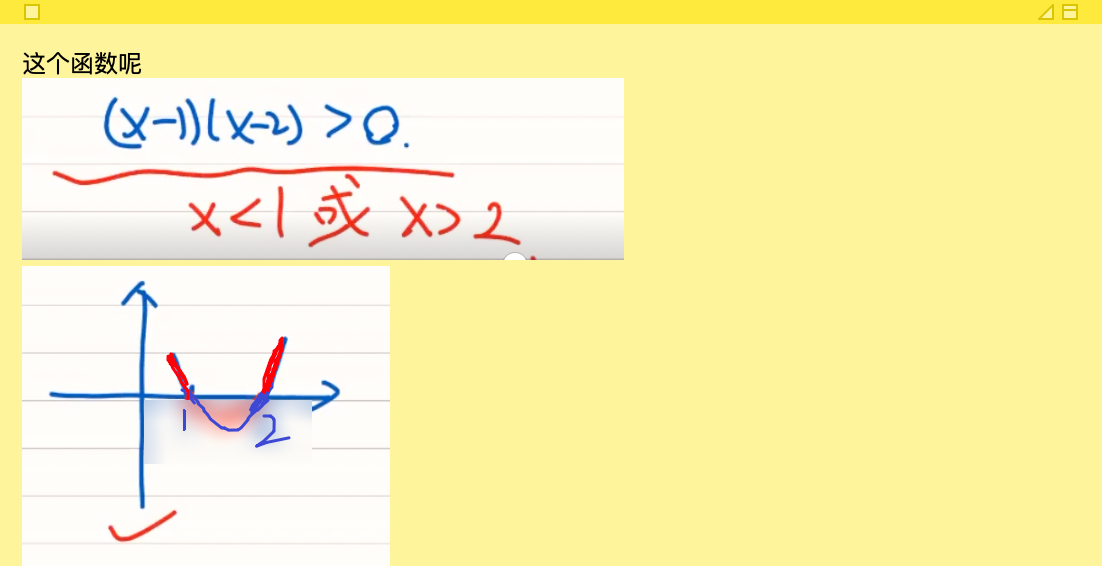 这个函数呢
(x-1)(x-2) > 0.
x<1 或 x>2
1 2